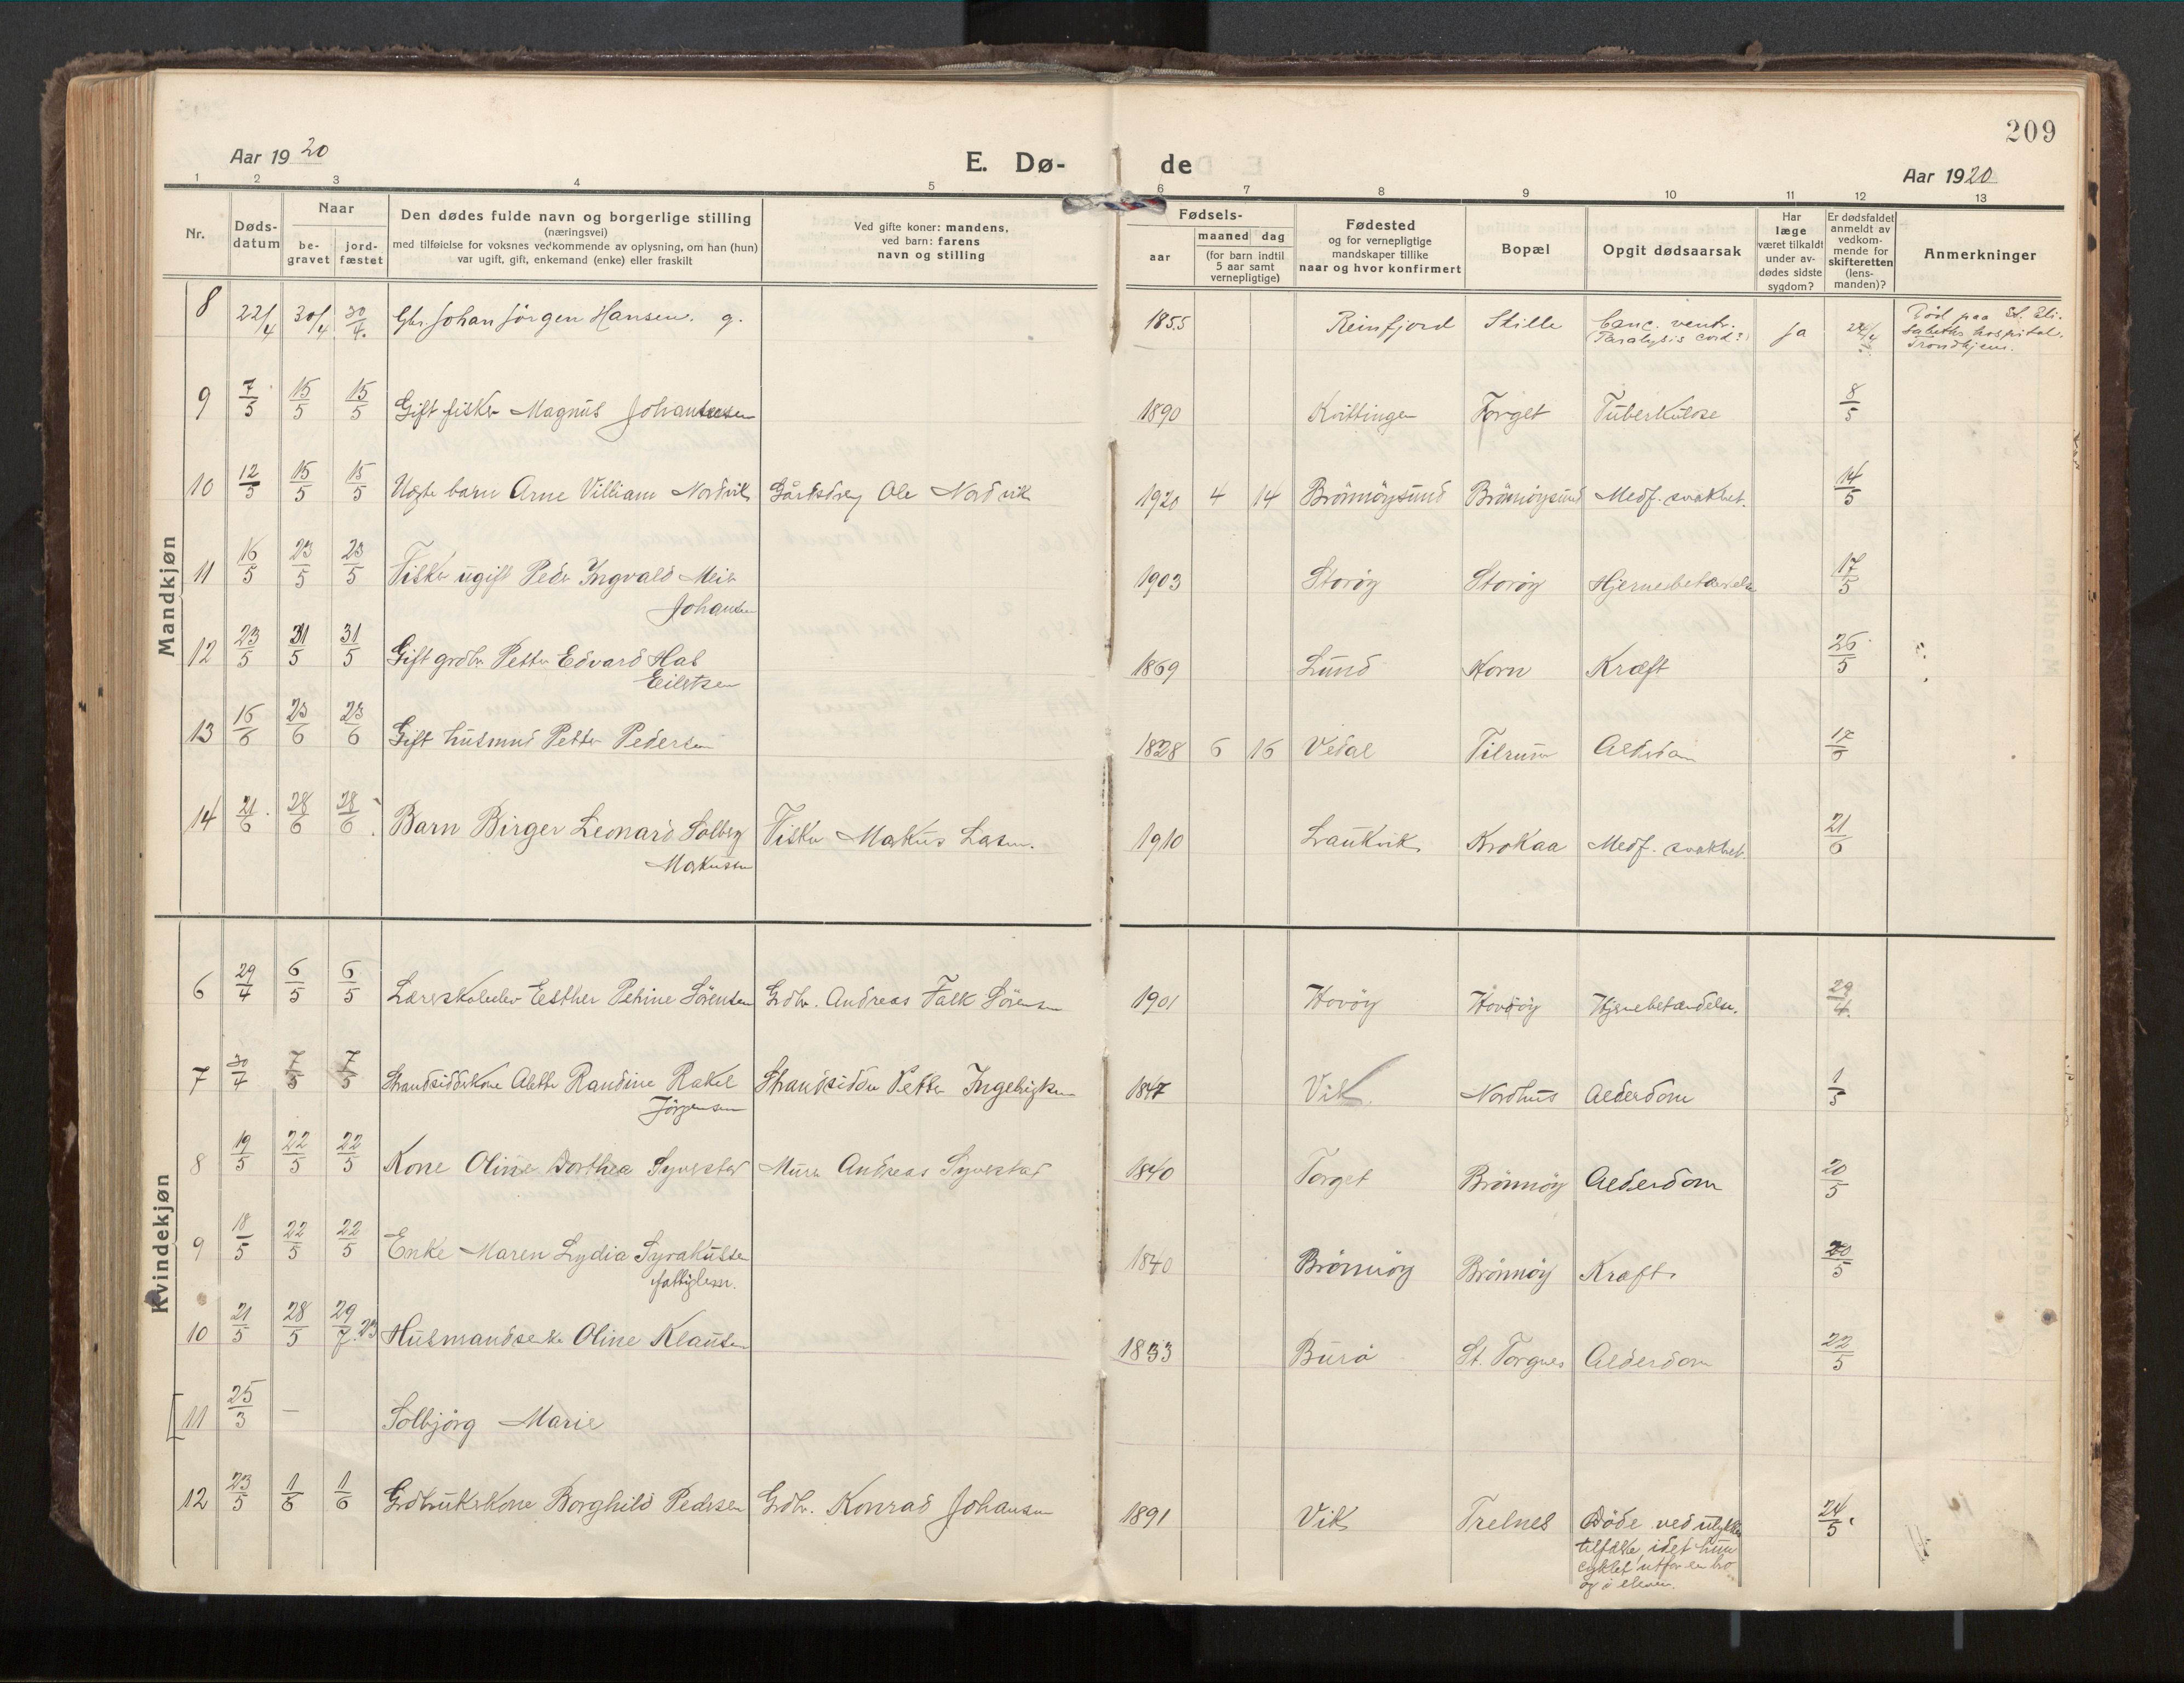 209
Aar 1920
E. Dø- de
Aar 1920
1 2 3 4 5 6 7 8 9 10 11 12 13
Nr.
Døds-
datum
Naar
be-
gravet
jord-
fæstet
Den dødes fulde navn og borgerlige stilling
(næringsvei)
med tilføielse for voksnes vedkommende av oplysning, om han (hun)
var ugift, gift, enkemand (enke) eller fraskilt
Ved gifte koner: mandens,
ved barn: farens
navn og stilling
Fødsels-
aar
maaned dag
(for barn indtil
5 aar samt
vernepligtige)
Fødested
og for vernepligtige
mandskaper tillike
naar og hvor konfirmert
Bopæl
Opgit dødsaarsak
Har
læge
været tilkaldt
under av-
dødes sidste
sygdom?
Er dødsfaldet
anmeldt av
vedkom-
mende for
skifteretten
(lens-
manden)?
Anmerkninger
Mandkjøn
8 22/4 30/4 30/4. Gbr Johan Jörgen Hansen. g. 1855 Reinfjord Skille Canc. ventr. ja Död paa St. Eli-
(Paralysis cord?) sabeths hospital,
Trondhjem.
9 7/5 15/5 15/5 Gift fisker Magnus Johansen 1890 Kvittingen Torget Tuberkulose 8/5
10 12/5 15/5 15/5 Uegte barn Arne Villiam Nordvik Ole Nordvik 1920 4 14 Brönnöysund Brönnöysund Medf. svakhet. 14/5
11 16/5 23/5 23/5 Fisker ugift Peder Ingvald Meier 1903 Storöy Storöy Hjernebetændelse 17/5
Johansen
12 23/5 31/5 31/5 Gift grdbr Petter Edvard Hab 1869 Lund Horn Kræft 26/5
Eilertsen
13 16/6 23/6 23/6 Gift husmnd Petter Pedersen 1828 6 16 Vedal Tilrum Alderdom 17/6
14 21/6 28/6 28/6 Barn Birger Leonard Solberg Fisker Markus Lasen. 1910 Laukvik Krokaa Medf. svakhet 21/6
Markussen
Kvindekjøn
6 29/4 6/5 6/5 Lærerskoleelev Esther Petrine Sörensen Grdbr. Andreas Falk Sörensen 1901 Hovöy Hovöy Hjernebetændelse. 29/4.
7 30/4 7/5 7/5 Strandsidderkone Alette Randine Rakel Strandsidder Petter Ingebrigtsen 1847 Vik. Nordhus Alderdom 1/5
Jörgensen
8 19/5 22/5 22/5 Kone Oline Dorthea Syverstad Murer Andreas Syverstad 1840 Torget Brönnöy Alderdom 20/5
9 18/5 22/5 22/5 Enke Maren Lydia 1840 Brönnöy Brönnöy Kræft. 20/5
10 21/5 28/5 29/7.23 Husmandsenke Oline Klausen 1833 Burö St. Torgnes Alderdom 22/5
[11 25/3 — Solbjörg Marie
12 23/5 1/6 1/6 Grdbrukerkone Borghild Pedersen Grdbr. Konrad Johansen 1891 Vik Trelnes Döde ved ulykkes 24/5
tilfælde, idet hun
cyklet utfor en bro
og i elven.